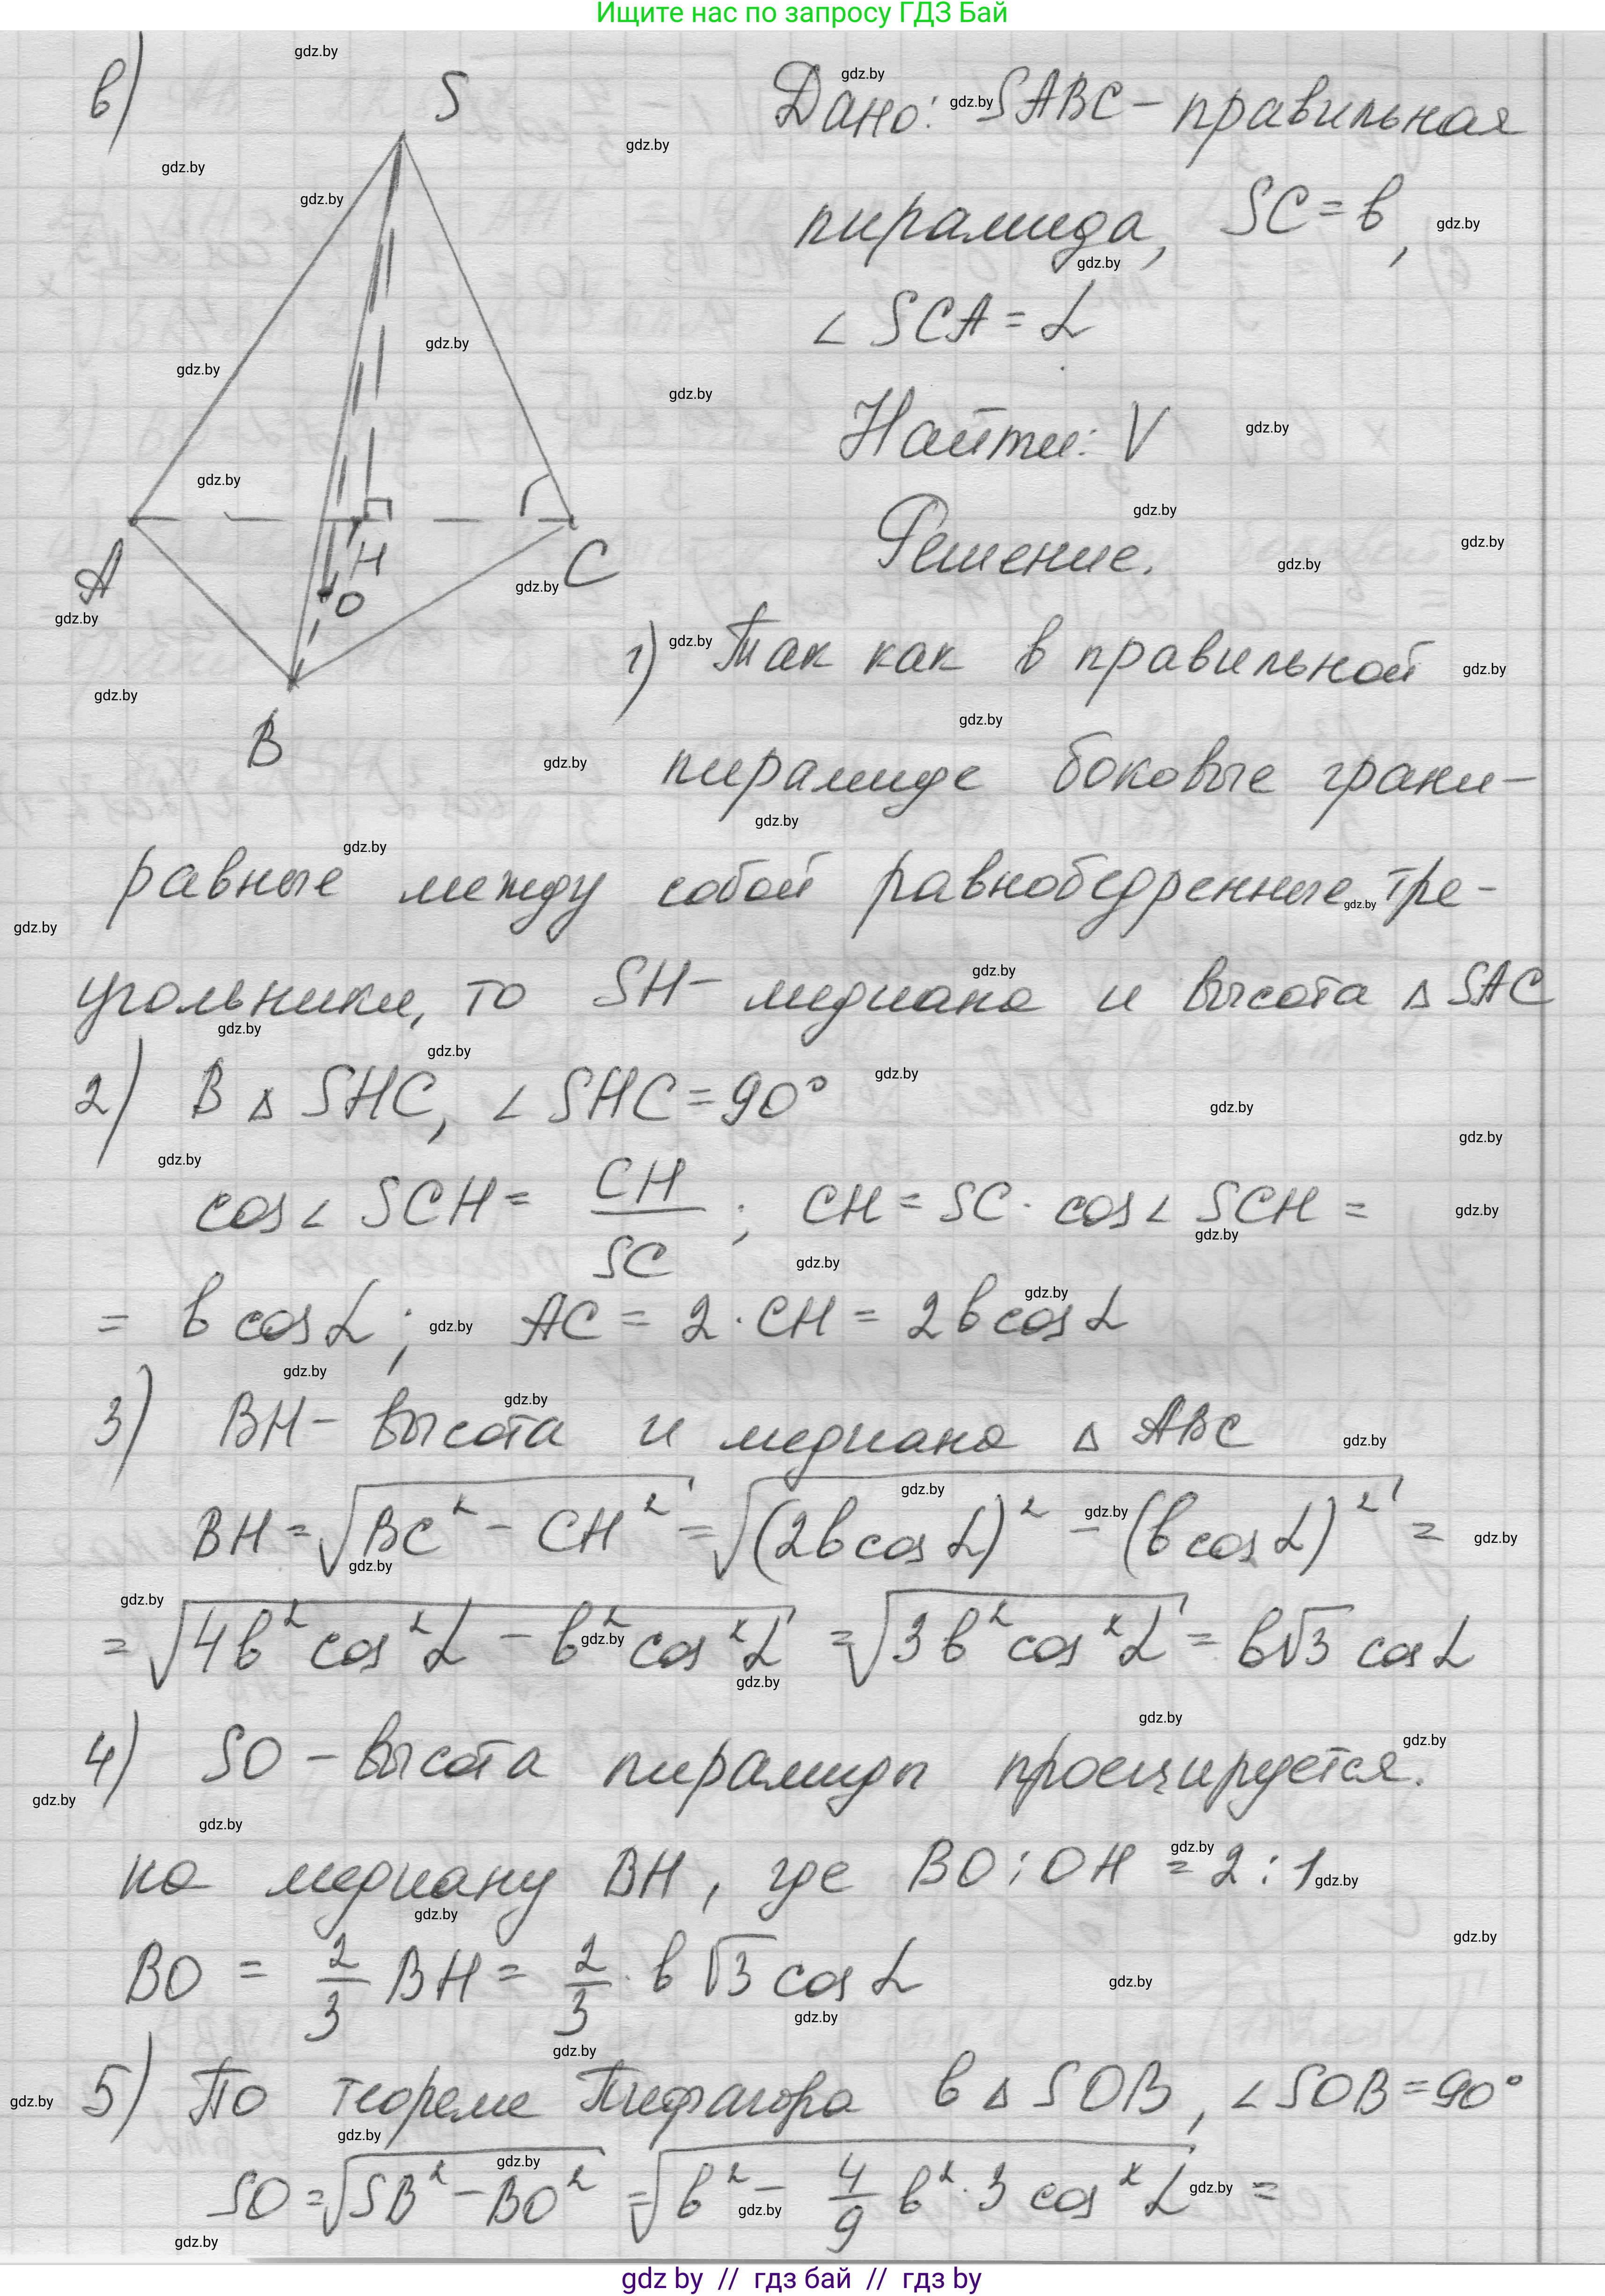 Ищите нас по запросу ГДЗ Бай
в)
S
A
H
O
C
B
Дано: SABC – правильная
пирамида, SC = b,
∠ SCA = α
Найти: V
Решение.
1) Так как в правильной
пирамиде боковые грани –
равные между собой равнобедренные тре-
угольники, то SH – медиана и высота △ SAC
2) В △ SHC, ∠ SHC = 90°
cos ∠ SCH = CH/SC ; CH = SC · cos ∠ SCH =
= b cos α ; AC = 2 · CH = 2b cos α
3) BH – высота и медиана △ ABC
BH = √(BC² – CH²) = √((2b cos α)² – (b cos α)²) =
= √(4b² cos² α – b² cos² α) = √(3b² cos² α) = b√3 cos α
4) SO – высота пирамиды проецируется.
на медиану BH, где BO : OH = 2 : 1
BO = 2/3 BH = 2/3 · b √3 cos α
5) По теореме Пифагора в △ SOB, ∠ SOB = 90°
SO = √(SB² – BO²) = √(b² – 4/9 b² · 3 cos² α) =
gdz by // гдз бай // гдз by